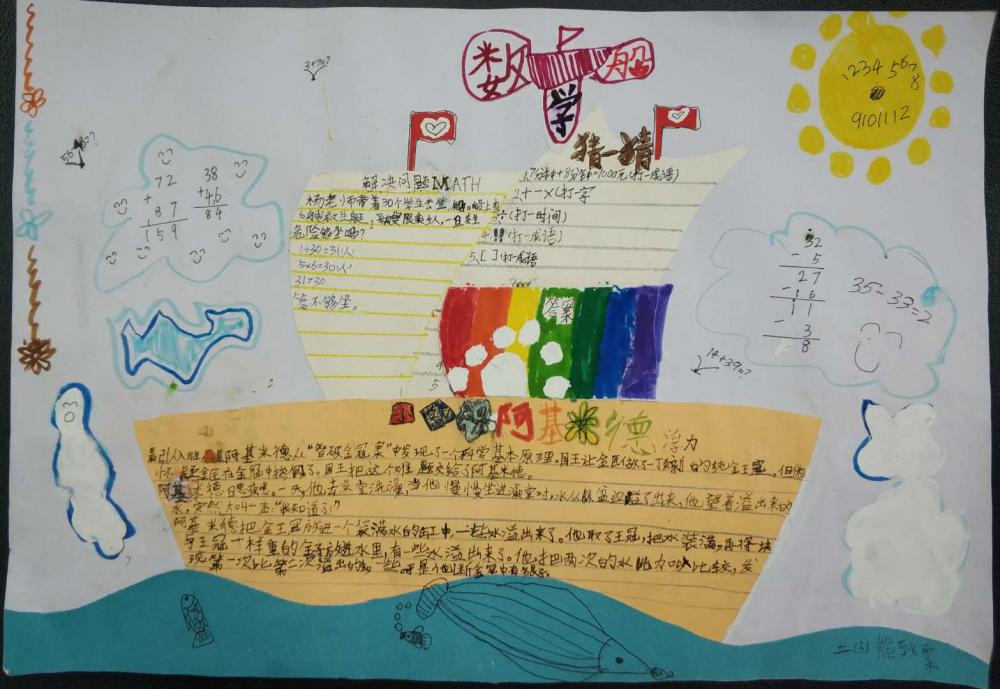 数学船
3+7=?
1 2 3 4 5 6 7 8
9 10 11 12
56-16=?
72
+
87
159
38
+46
84
猜一猜
解决问题MATH
杨老师带着30个学生去坐船。船上有
6只救生艇,每艇限乘5人,一旦发生
危险够坐吗?
1+30=31人
5×6=30人
31>30
答不够坐。
=1000元(打一成语)
2.十一×(打一字
(打一时间)
4.!!(打一成语)
5.[ ](打一成语
答案
4
5
32
- 5
27
-16
11
- 3
8
35-33=2
14+39=?
阿基米德
浮力
引入班 阿基米德从“智破金冠案”中发现了一个科学基本原理。国王让金匠做了一顶新的纯金王冠。但他
怀疑金匠在金冠中掺假了。国王把这个难题交给了阿基米德。
阿基米德日思夜想。一天,他去公室洗澡,当他慢慢坐进澡堂时,水从盆边溢了出来,他望着溢出来的
水,突然大叫一声:“我知道了!”
阿基米德把金王冠放进一个装满水的缸中,一些水溢出来了。他取了王冠,把水装满,再将块
与王冠一样重的金子放进水里,有一些水溢出来了。他把两次的水比较,发
现第一次比第二次溢出的多一些。于是他判断金冠中有银子。
二(3)熊